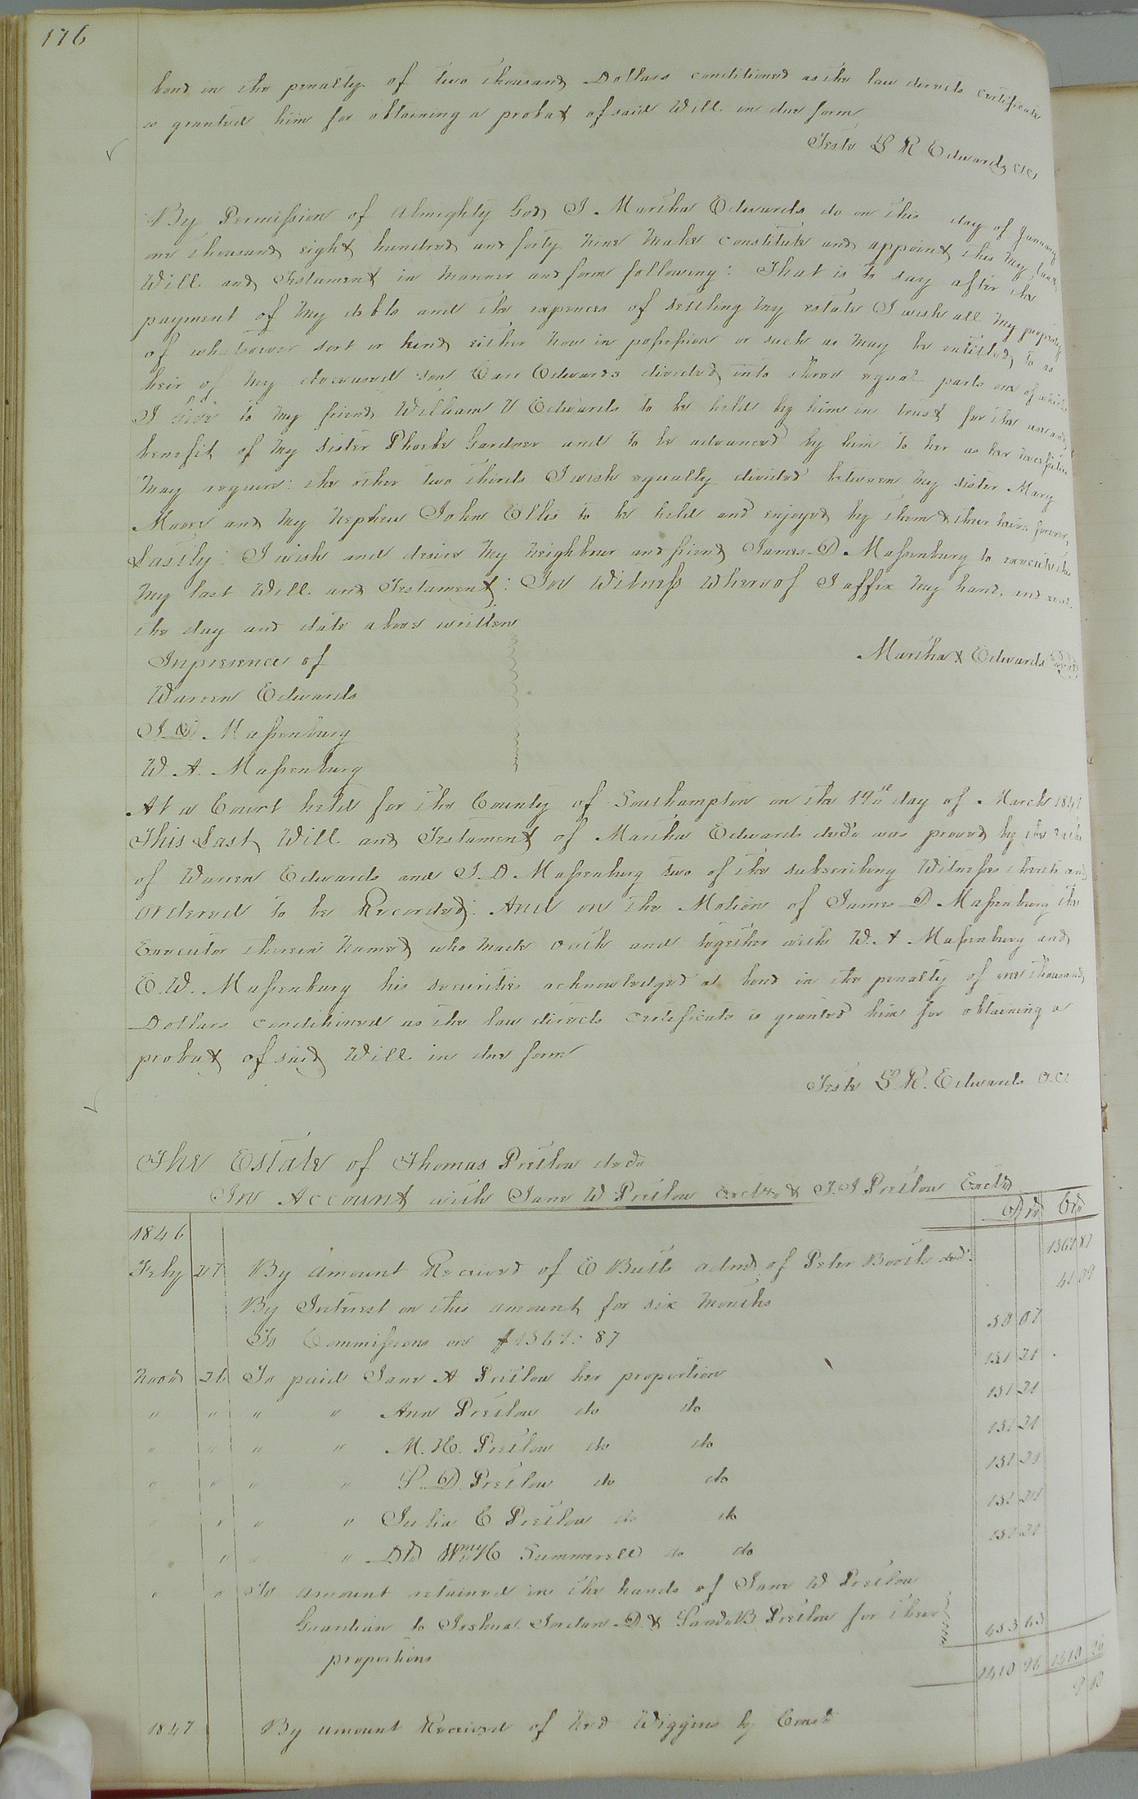 176
bond in the penalty of two thousand Dollars conditioned as the law directs certificate
is granted him for obtaining a probat of said Will in due form
Teste L R Edwards CC
By Permission of Almighty God, I Martha Edwards do on this day of January
one thousand eight hundred and forty nine make constitute and appoint this my last
Will and Testament in manner and form following: That is to say after the
payment of my debts and the expences of settling my estate I wish all my property
of whatsoever sort or kind either now in possession or such as may be entitled to as
heir of my deceased son Edwards divided into three equal parts one of which
I give to my friend William Edwards to be held by him in trust for the use and
benefit of my sister Phoebe Gardner and to be advanced by him to her as her necessities
may require: the other two thirds I wish equally divided between my sister Mary
Moore and my nephew John Ellis to be held and enjoyed by them & their heirs forever,
Lastly: I wish and desire my neighbour and friend James D. Massenburg to execute this
my last Will and Testament: In Witness Whereof I affix my hand and seal
the day and date above written
In presence of
Martha X Edwards
Warren Edwards
J. D. Massenburg
W. A. Massenburg
At a Court held for the County of Southampton on the 19th day of March 1849
This Last Will and Testament of Martha Edwards decd. was proved by the oaths
of Warren Edwards and J. D. Massenburg two of the subscribing Witnesses thereto and
ordered to be Recorded. And on the Motion of James D. Massenburg the
Executor therein named, who made oath and together with W. A Massenburg and
E. W. Massenburg his securities acknowledged a bond in the penalty of one thousand
Dollars conditioned as the law directs certificate is granted him for obtaining a
probat of said Will in due form
Teste L. R. Edwards C.C.
The Estate of Thomas Pretlow decd.
In Account with Jane W Pretlow Exctrx & T. J Pretlow Exctr
Drs Crs
1846
Feby 27 By Amount Received of E Butts admr. of Peter Booth decd. 1367 87
By Interest on this amount for six months 41 09
To Commissions on $1367.87 50 07
Novr 26 To paid Jane A Pretlow her proportion 151 21
" " " " Ann Pretlow do do 151 21
" " " " M. H. Pretlow do do 151 21
" " " " S. D. Pretlow do do 151 21
" " " Julia E Pretlow do do 151 21
" " " Wm. H Summerell do do 151 21
" " To amount retained in the hands of Jane W Pretlow
Guardian to Joshua Jordan D. & B Pretlow for their
proportions 453 63
1410 96 1410 96
1847 By amount Received of Wiggins by